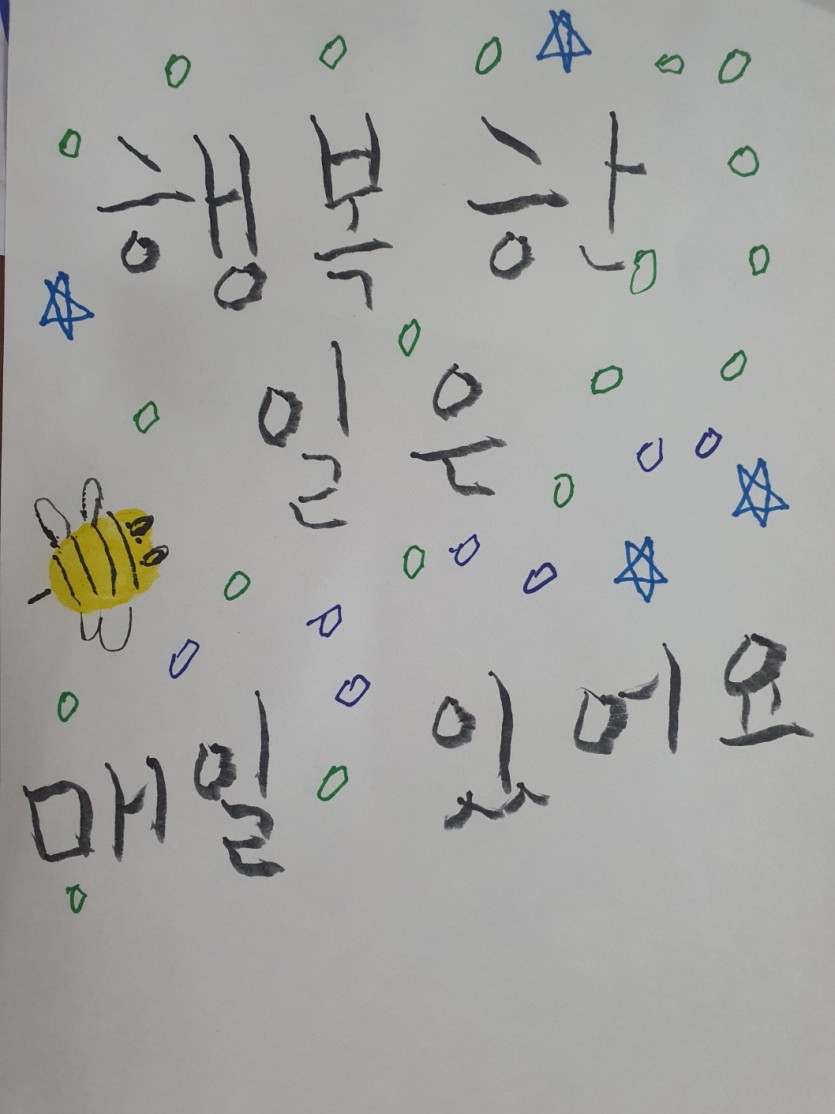 행복한
일은
매일 있어요